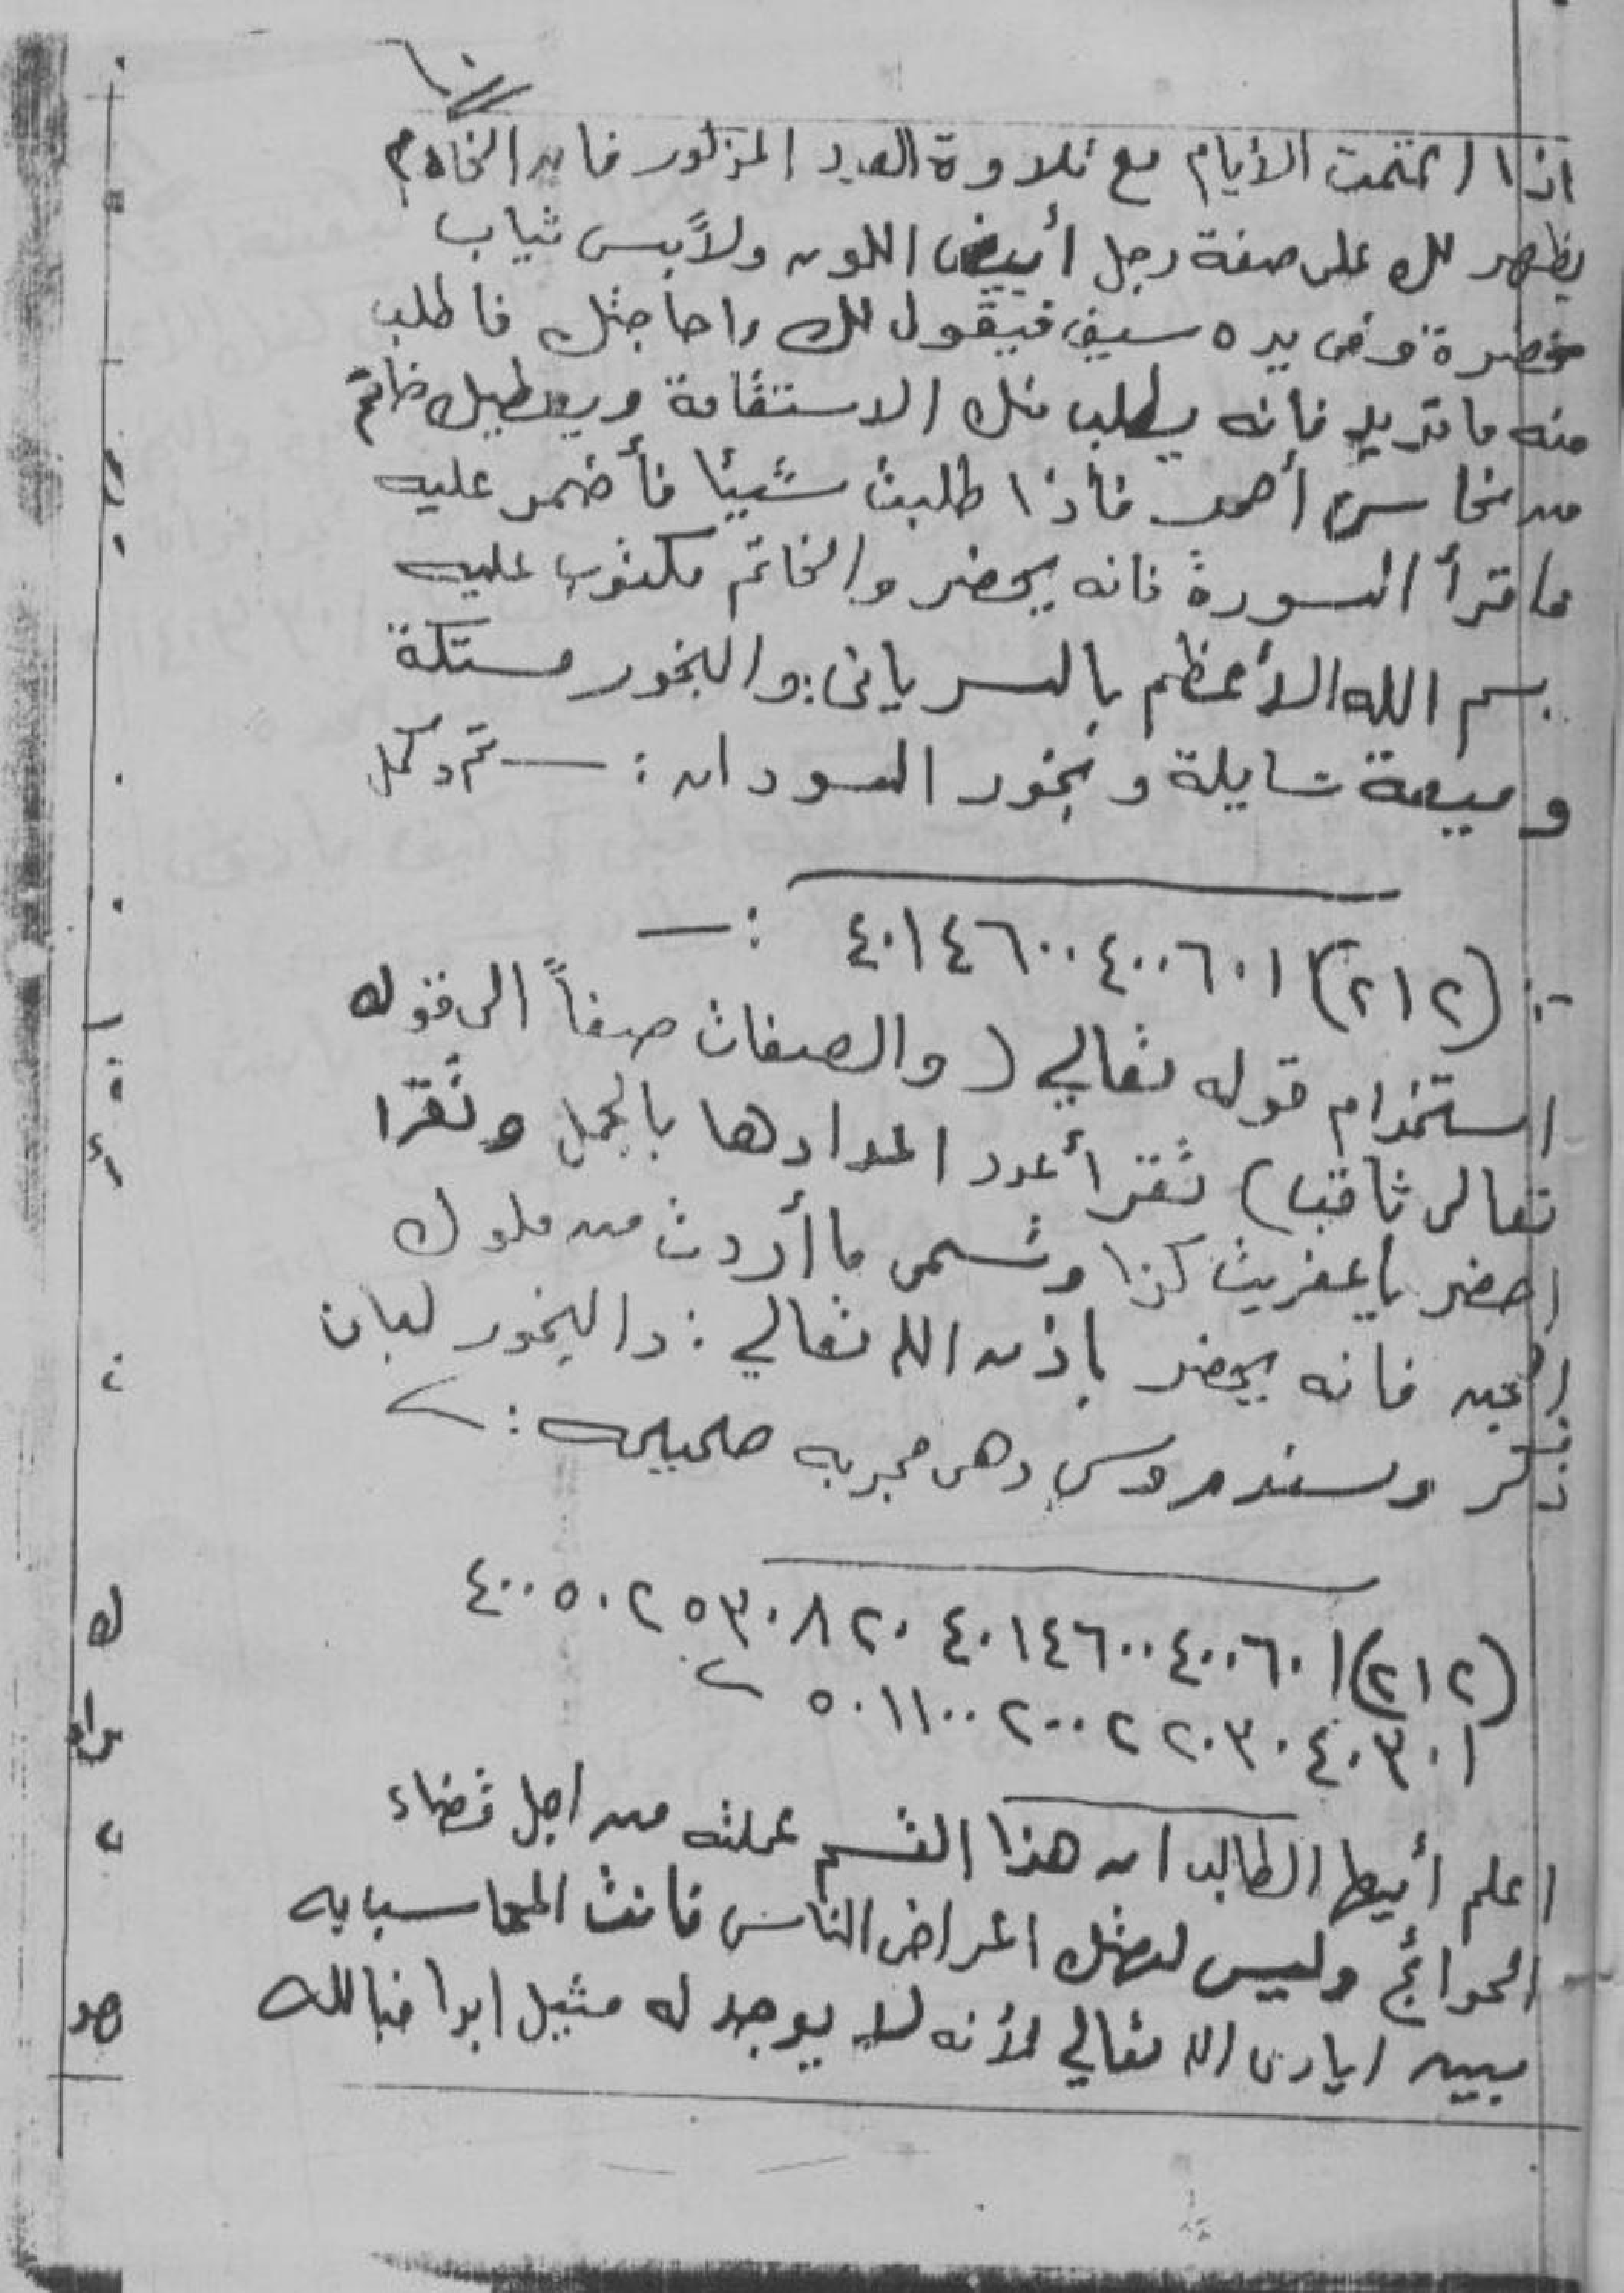 اذا اتممت الأيام مع تلاوة العدد المذكور فان الخادم
يظهر لك على صفة رجل أبيض اللون ولابس ثياب
خضرة وفى يده سيف فيقول لك ما حاجتك فاطلب
منه ما تريد فانه يطلب منك الاستقامة ويعطيك خاتم
من نحاس أحمر فأذا طلبت شيئا فأضمر عليه
واقرأ السورة فانه يحضر والخاتم مكتوب عليه
بسم الله الأعظم بالسريانى: والبخور مستكة
وميعة سايلة وبخور السودان :— تم وكمل
:- (٢١٢) ٤٠١٤٦٠٠٤٠٠٦٠١ :—
استخدام قوله تعالي ( والصفات صفاً الى قوله
تعالى ثاقب) تقرأ عدد اعدادها بالجمل وتقرا
احضر ياعفريت كذا وتسمى ما أردت من ملوك
الجن فانه يحضر باذن الله تعالي : والبخور لبان
ذكر وسندروس وهى مجربه صحيحه :
(٢١٢) ٤٠٠٥٠٢٥٣٠٨٢٠ ٤٠١٤٦٠٠٤٠٠٦٠١
٥٠١١٠٠٢٠٠٢٢٠٣٠٤٠٣٠١
اعلم أيها الطالب ان هذا القسم عملته من اجل قضاء
الحوائج وليس لهتك اعراض الناس فانت المحاسب به
بين ايادى الله تعالي لأنه لا يوجد له مثيل ابدا فبالله